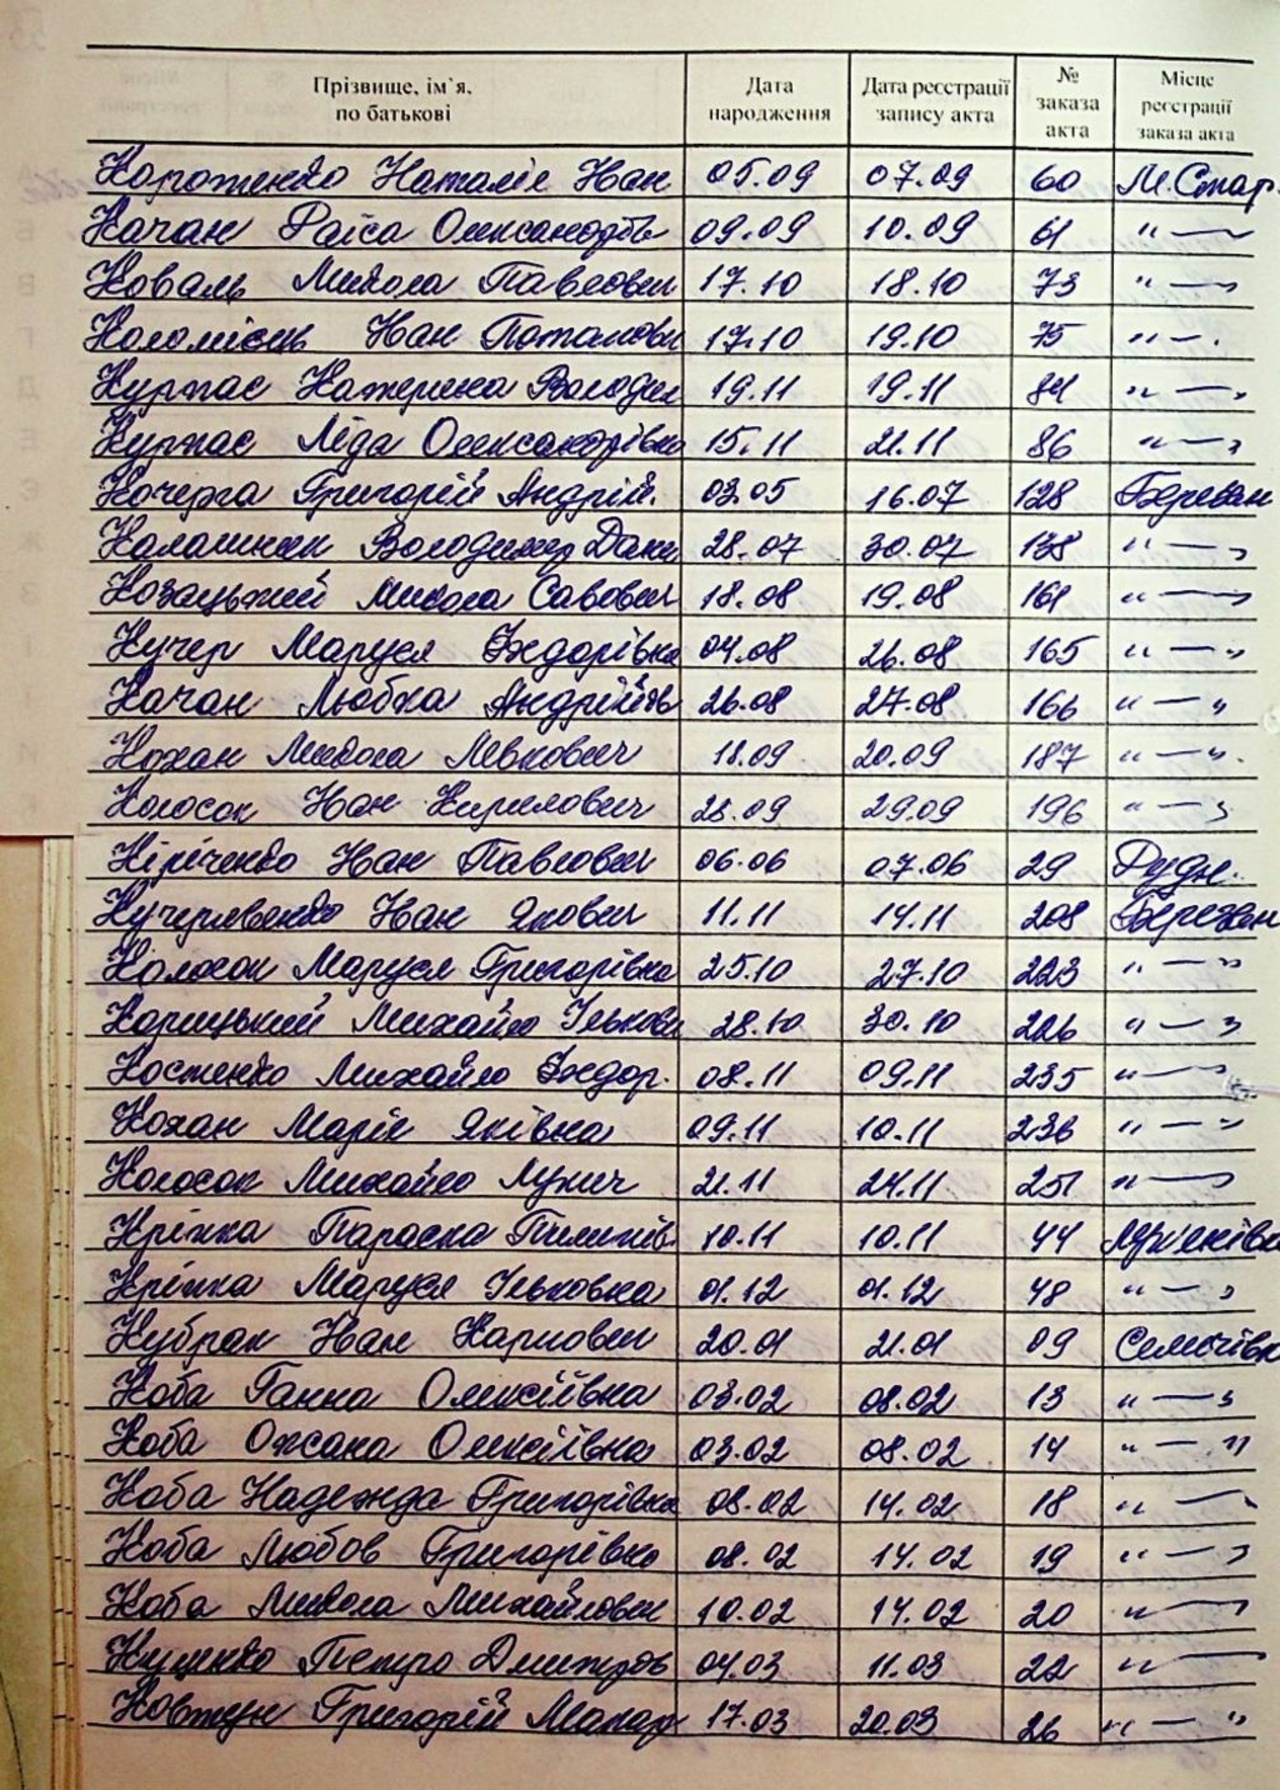 Прізвище, ім`я, по батькові Дата народження Дата реєстрації запису акта № заказа акта Місце реєстрації заказа акта
Короженко Наталія Іван 05.09 07.09 60 М.Стар.
Качан Раїса Олександрів 09.09 10.09 61 " —
Коваль Микола Павлович 17.10 18.10 73 " — "
Коломієць Іван Потапови 17.10 19.10 75 " — .
Курпас Катерина Володим 19.11 19.11 84 " — "
Курпас Ліда Олександрівна 15.11 21.11 86 " — "
Кочерга Григорій Андрій. 03.05 16.07 128 Березан
Калашник Володимир Дани 28.07 30.07 138 " — "
Козацький Микола Савович 18.08 19.08 161 " — "
Кучер Маруся Федорівна 04.08 26.08 165 " — "
Качан Любка Андріїв 26.08 27.08 166 " — "
Кохан Микола Левкович 18.09 20.09 187 " — "
Колосок Іван Кирилович 28.09 29.09 196 " — "
Кіріченко Іван Павлович 06.06 07.06 29 Рудн.
Кучерявенко Іван Якович 11.11 14.11 208 Березан
Колосок Маруся Григорівна 25.10 27.10 223 " — "
Карицький Михайло Ількови 28.10 30.10 226 " — "
Костенко Михайло Федор. 08.11 09.11 235 " — "
Кохан Марія Яківна 09.11 10.11 236 " — "
Колосок Михайло Лукич 21.11 24.11 251 " — "
Кріпка Параска Пилипів. 10.11 10.11 44
Кріпка Маруся Ільковна 01.12 01.12 48 " — "
Кубрак Іван Карпович 20.01 21.01 09 Семенівк
Коба Ганна Олексіївна 03.02 08.02 13 " — "
Коба Оксана Олексіївна 03.02 08.02 14 " — "
Коба Надежда Григорівна 08.02 14.02 18 " —
Коба Любов Григорівна 08.02 14.02 19 " — "
Коба Микола Михайлович 10.02 14.02 20 " — "
Куценко Петро Дмитров 04.03 11.03 22 " —
Ковтун Григорій Макар 17.03 20.03 26 " — "